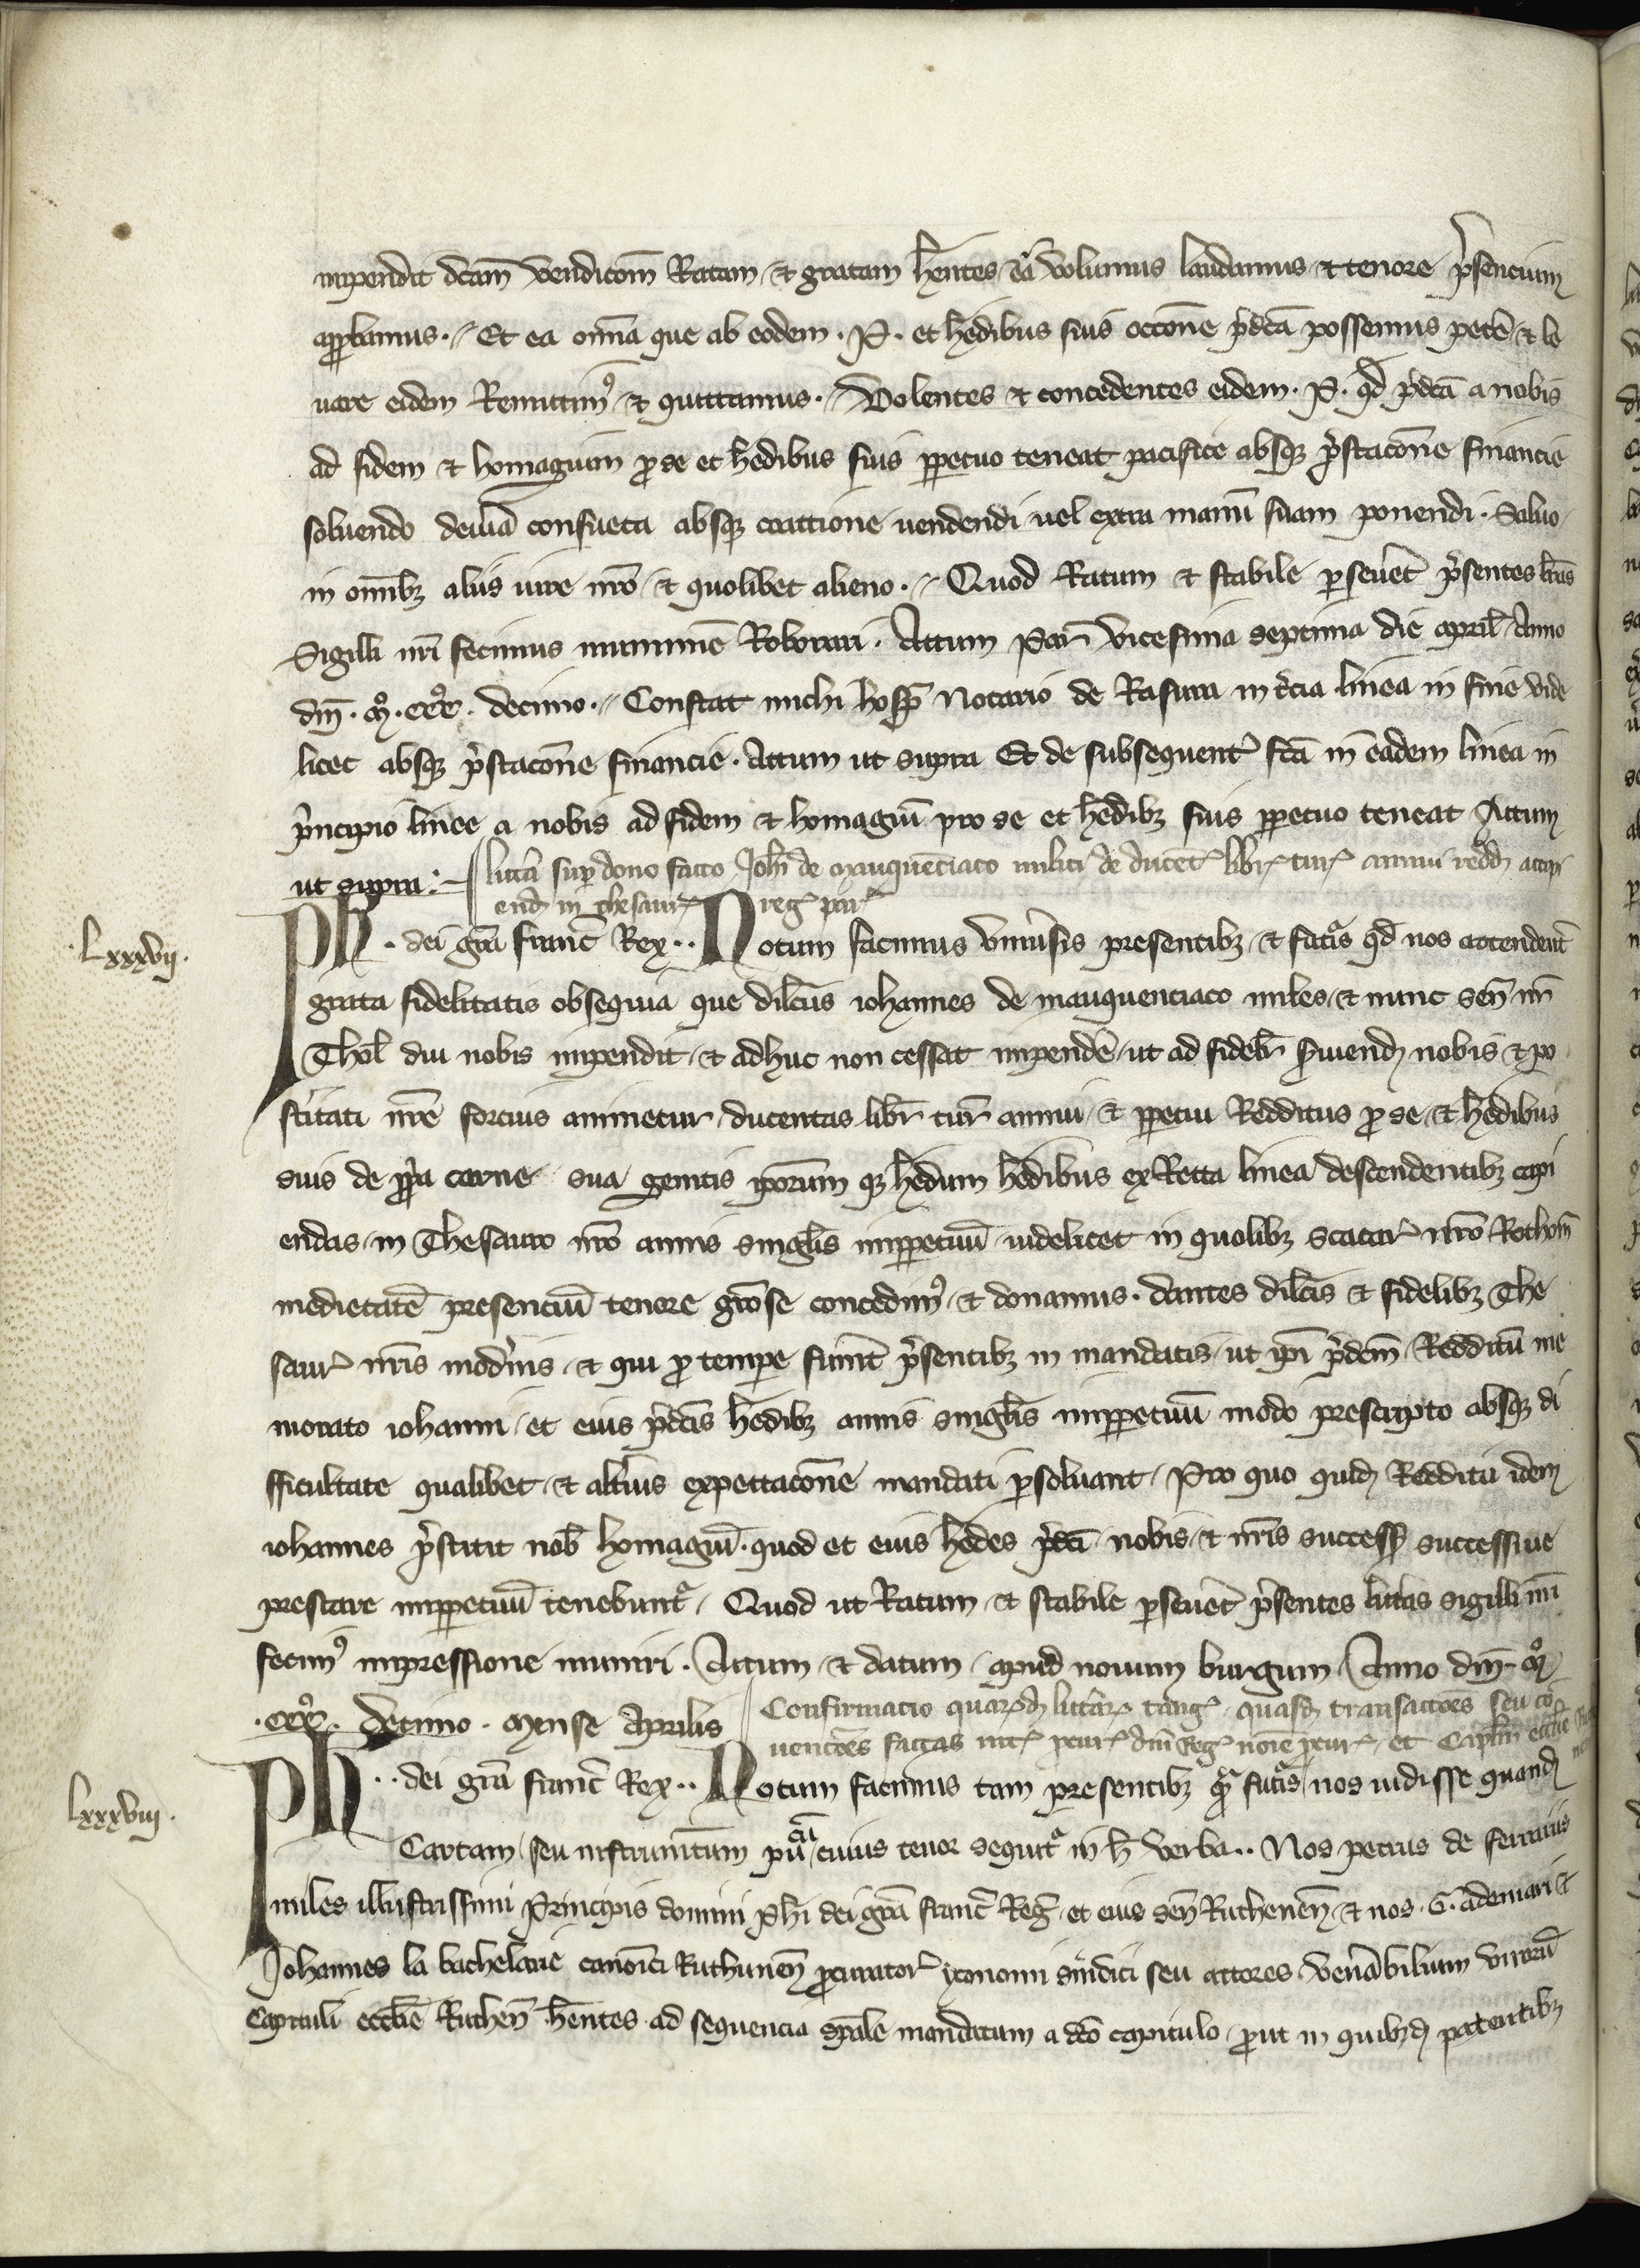 impendit dcām vendicōm Ratam et gratam hentes eā volumus laudamus et tenore p̄sencium
approbamus. Et ea om̄ia que ab eodem .P. et hedibus suis occōne p̄dcā possemus petē et le
uare eidem Remittim⁹ et quittamus. Volentes et concedentes eidem .P. qd p̄dcā a nobis
ad fidem et homagium ꝓ se et hedibus suis ꝑpetuo teneat pacifice absqꝫ p̄stacōne financie
soluendo deueria consueta absqꝫ coactione vendendi uel extra manū suam ponendi. Saluo
in om̄ibꝫ aliis iure nr̄o et quolibet alieno. Quod Ratum et stabile ꝑseueret p̄sentes lr̄as
Sigilli nr̄i fecimus munimine Roborari. Actum Par̄ vicesima septima die april̄ Anno
dn̄i .mº.cccº. decimo. Constat michi hosp̄ Notario de Rasura in t̄cia linea in fine vide
licet absqꝫ p̄stacōne financie. Actum ut supra Et de subsequent̄ fcā in eadem linea in
p̄ncipio linee a nobis ad fidem et homagiū pro se et hedibꝫ suis ꝑpetuo teneat Actum
ut supra
litt̄a suꝑ dono facto Joh̄i de mauquenciaco militi de ducent̄ libr̄ tur̄ annui redd̄ accipi
end̄ in thesaur̄ reḡ par̄
.Lxxxvij.
Ph̄.. dei grā franc̄ Rex.. Notum facimus vniūsis presentibꝫ et futis̄ qd nos attendent̄
grata fidelitatis obsequia que dilc̄us iohannes de mauquenciaco miles et nunc sen̄ nr̄
Thol̄ diu nobis impendit et adhuc non cessat impendē ut ad fidelr̄ s̄uiend̄ nobis et po
st̄itati nr̄e forcius animetur ducentas libr̄ tur̄ annui et ꝑpetui Redditus ꝓ se et hedibus
suis de ꝓpa carne sua genitis ip̄orum qꝫ hedum hedibus ex Recta linea descendentibꝫ capi
endas in Thesauro nr̄o annis singlis̄ imꝑpetuū uidelicet in quolibꝫ scacar̄ nr̄o Rothom̄
medietatē presenciū tenore grōse concedim⁹ et donamus. dantes dilc̄is et fidelibꝫ The
saur̄ nr̄is mod̄nis et qui ꝓ tempe fuint̄ p̄sentibꝫ in mandatis ut ip̄i p̄dcm̄ Redditū me
morato iohanni et eius p̄dcīs hedibꝫ annis singlis̄ imꝑpetuū modo prescripto absqꝫ di
fficultate qualibet et alt̄ius expectacōne mandati ꝑsoluant. Pro quo quid̄ Redditu idem
iohannes p̄stitit nob̄ homagiū. quod et eius hedes p̄dcī nobis et nr̄is success̄ successiue
prestare imꝑpetuū tenebunt̄. Quod ut Ratum et stabile ꝑseueret p̄sentes litt̄as sigilli nr̄i
fecim⁹ impressione muniri. Actum et datum apud nouum burgum Anno dn̄i mº
.cccº. decimo. mense Aprilis
Confirmacio quarūd̄ litt̄ar̄ tanḡ quasd̄ transactōes seu cō
uenc̄oes factas int̄ pcur̄ dn̄i Reḡ noīe pcur̄ et Capitl̄m eccl̄ie
Lxxxviij.
Ph̄.. dei grā franc̄ Rex.. Notum facimus tam presentibꝫ qm̄ futis̄ nos uidisse quand̄
Cartam seu instrum̄tum pū cū cuius tenor sequit̄ in h̄ verba.. Nos petrus de ferrariis
miles illustrissimi Principis domini Ph̄i dei grā franc̄ Reḡ et eius sen̄ Ruthenen̄ et nos .G. ademari et
Johannes la bachelarie canonici Ruthunen̄ ꝓcurator̄ yconomi sindici seu actores venābilium virorū
Capituli eccl̄ie Ruthen̄ hentes ad sequencia sp̄ale mandatum a dcō capitulo ꝓut in quibꝫd̄ patentibꝫ